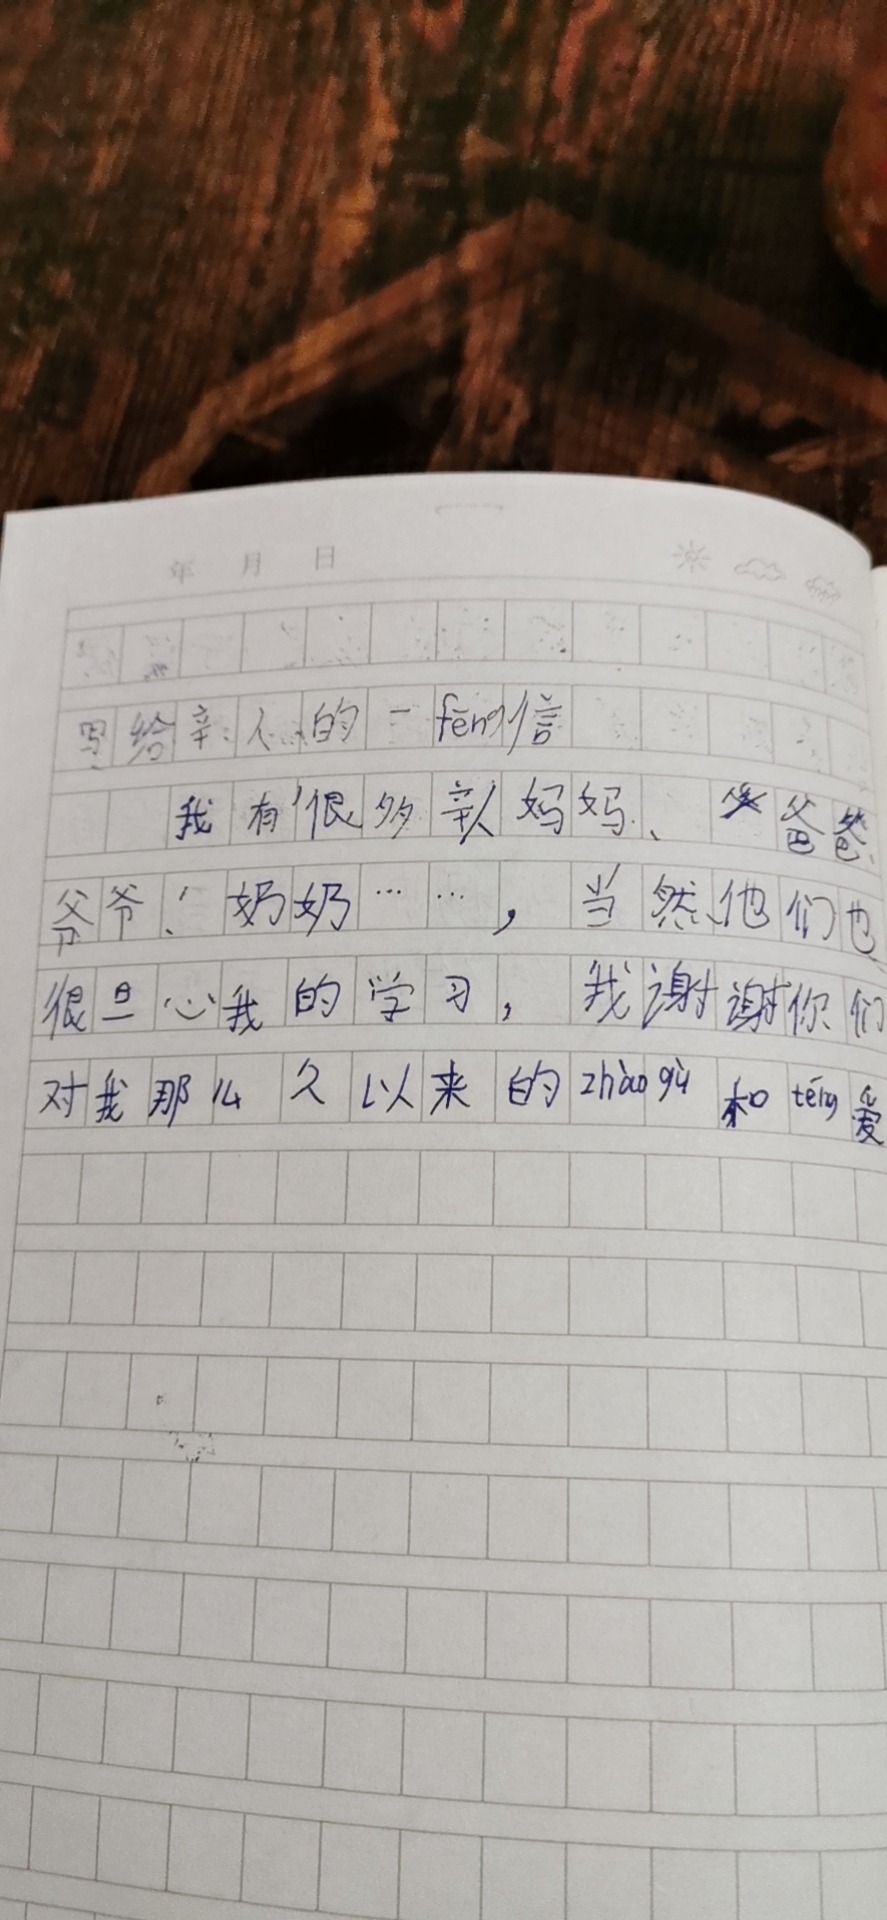 年 月 日
写给亲人的一fēng信
我有很多亲人妈妈、爸爸、
爷爷、奶奶……，当然他们也
很旦心我的学习，我谢谢你们
对我那么久以来的zhàogù和téng爱